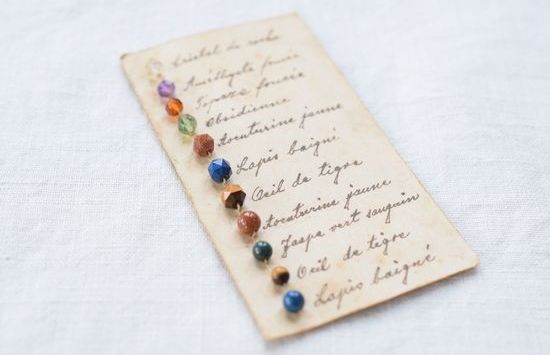 Cristal de roche
Améthyste foncée
Topaze foncée
Obsidienne
Aventurine jaune
Lapis baigné
Oeil de tigre
Aventurine jaune
Jaspe vert sanguin
Oeil de tigre
Lapis baigné